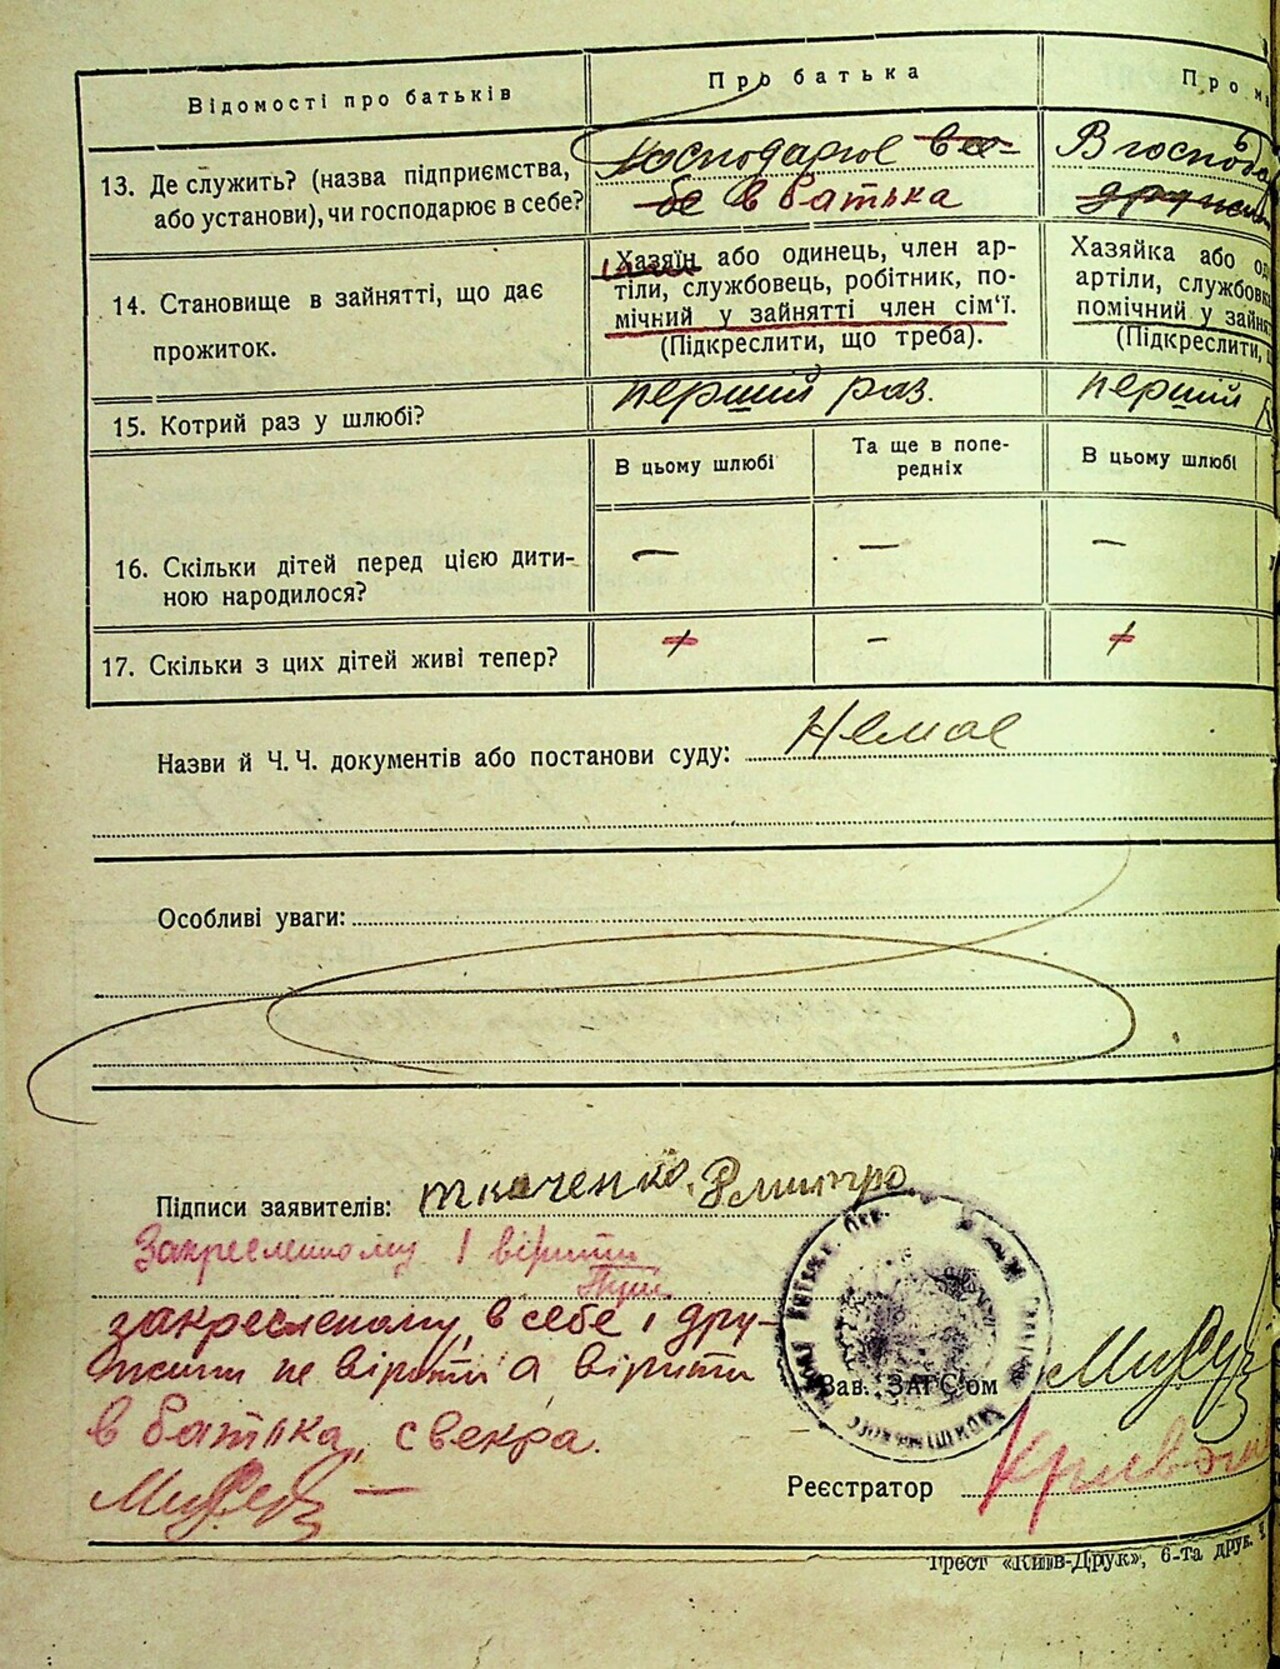 Відомості про батьків
Про батька
Про м
13. Де служить? (назва підприємства,
або установи), чи господарює в себе?
господарює в се-
бе в батька
В господ
14. Становище в зайнятті, що дає
прожиток.
Хазяїн або одинець, член ар-
тіли, службовець, робітник, по-
мічний у зайнятті член сім'ї.
(Підкреслити, що треба).
Хазяйка або од
артіли, службовк
помічний у зайня
(Підкреслити,
15. Котрий раз у шлюбі?
перший раз.
перший
В цьому шлюбі
Та ще в попе-
редніх
В цьому шлюбі
16. Скільки дітей перед цією дити-
ною народилося?
—
—
—
17. Скільки з цих дітей живі тепер?
+
-
+
Назви й Ч. Ч. документів або постанови суду: Немає
Особливі уваги:
Підписи заявителів: ткаченко Дмитро
Закресленному 1 вірити
закресленому в себе і дру-
жини не віріти а вірити
в батька, свекра.
Зав. ЗАГС'ом
Реєстратор
Трест «Київ-Друк», 6-та друк.